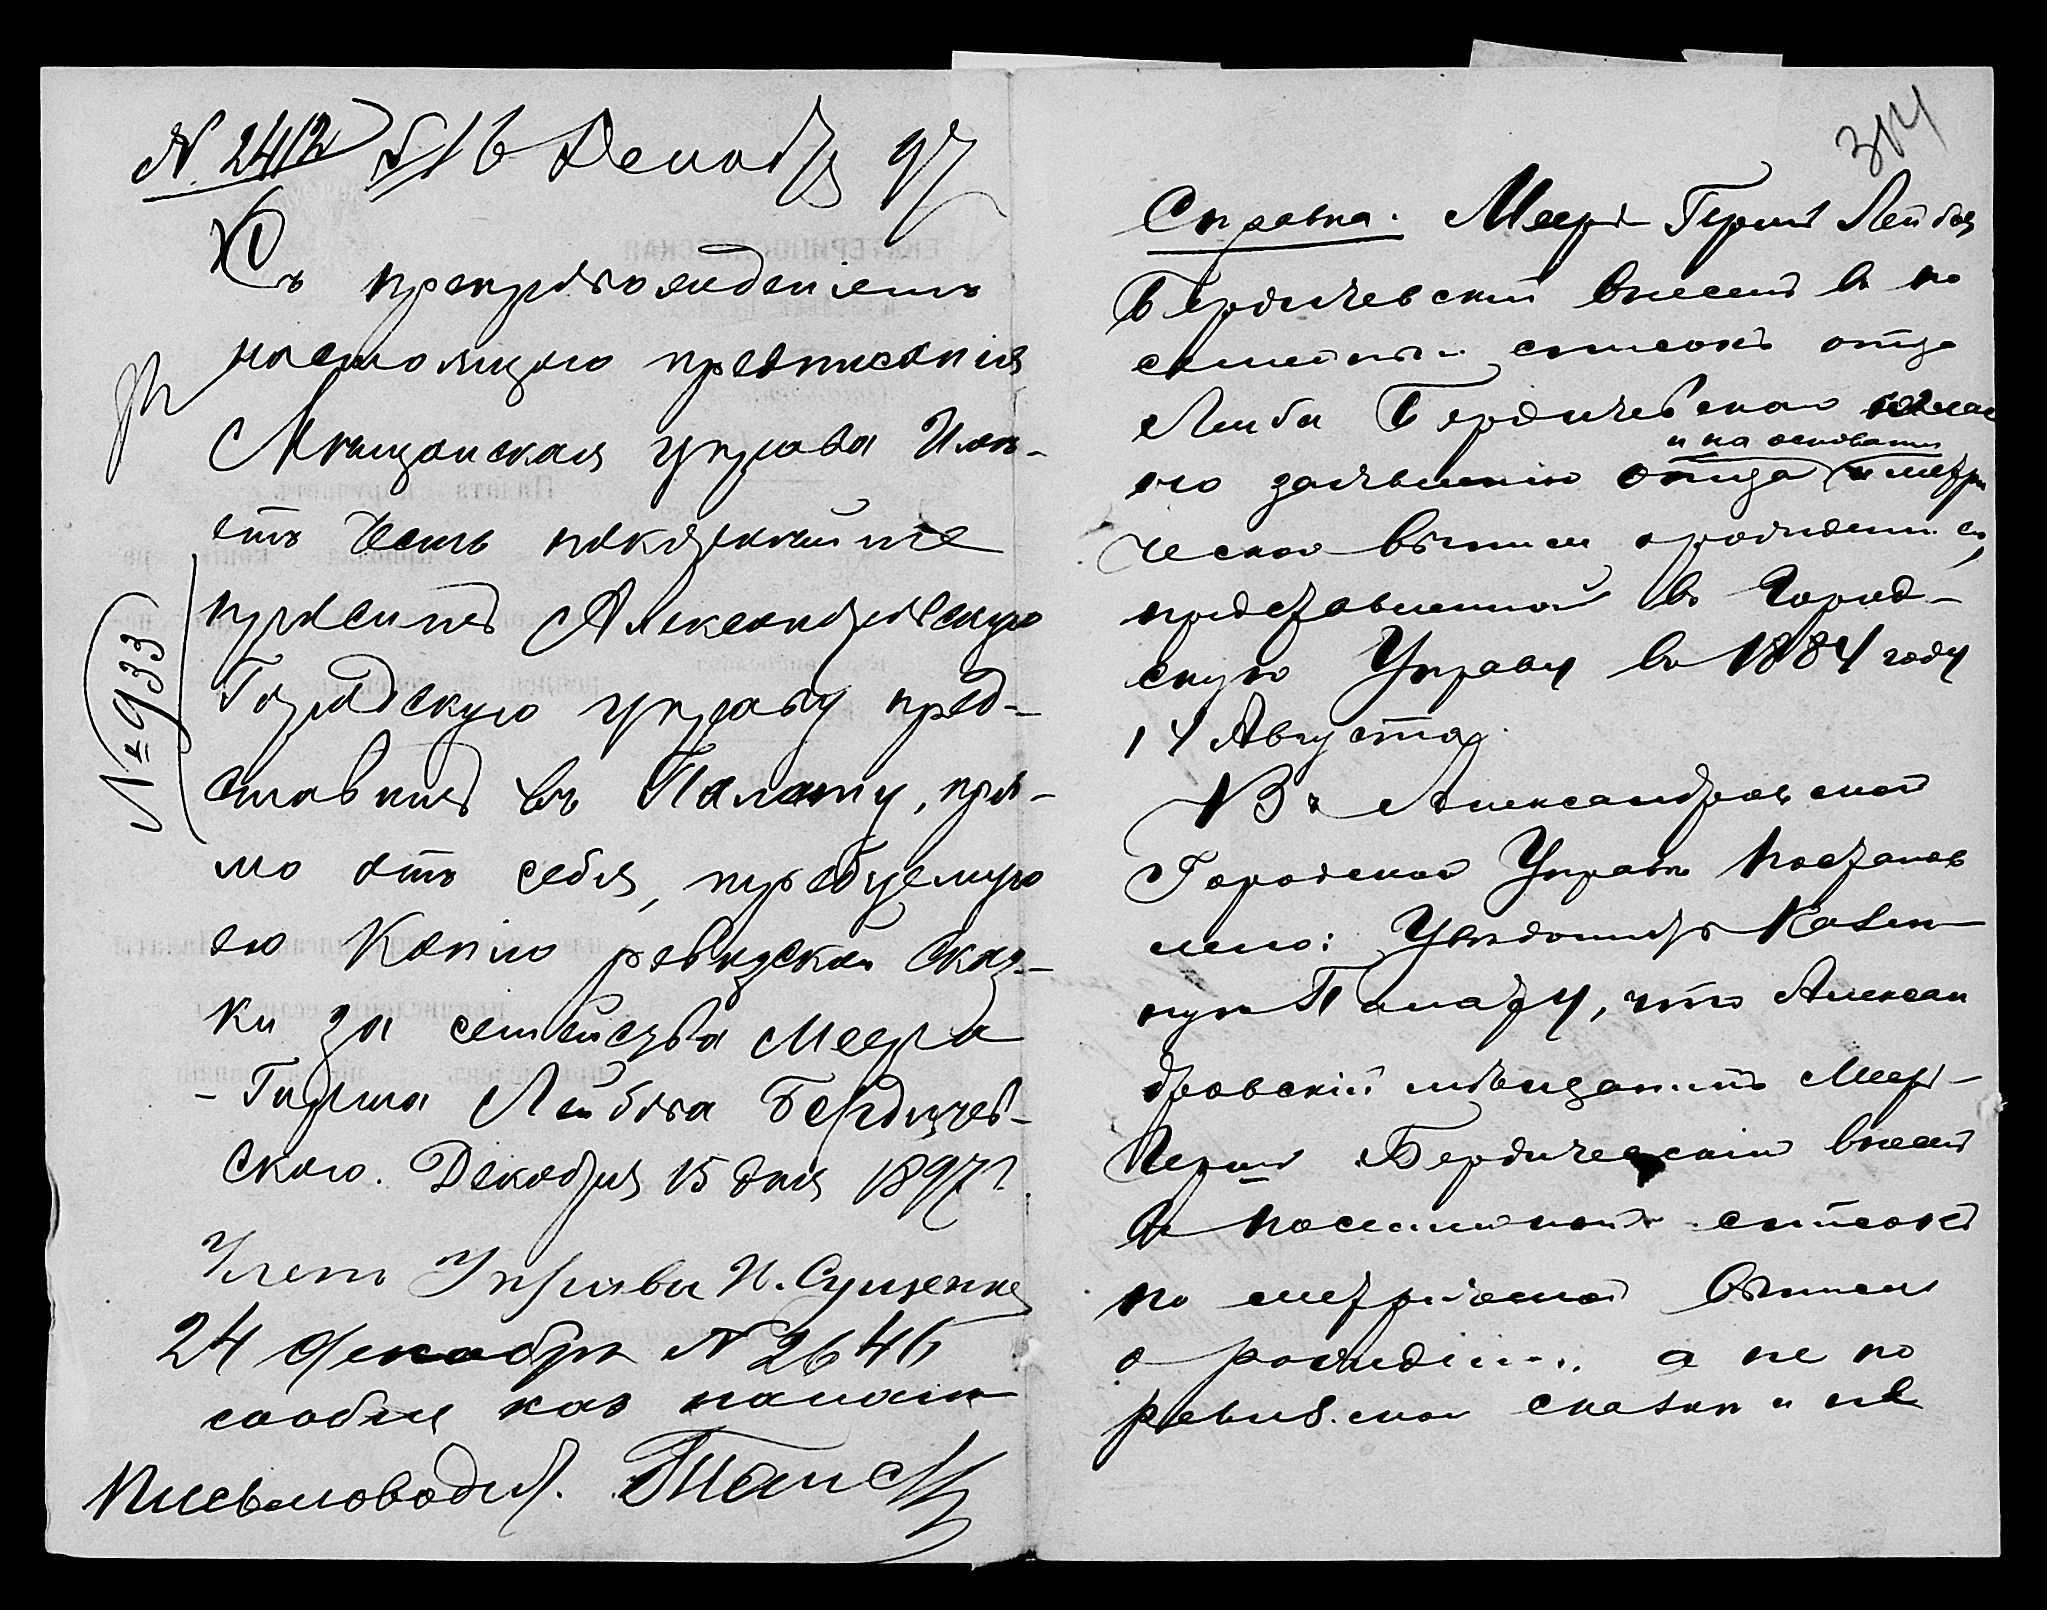 № 2412 16 Декабр 97
Съ препровожденіемъ
настоящаго предписанія
Мѣщанская управа имѣ-
етъ честь покорнѣйше
проситъ Александровскую
Городскую управу пред-
ставитъ въ Палату, пря-
мо отъ себя, требуемую
ею копію ревизской сказ-
ки за семейства Меера
-Герша Лейбова Бердичев-
скаго. Декабря 15 дня 1897 г.
Членъ Управы И. Сущенко
24 декабря № 2646
сообщ каз палат
Письмоводит.
№ 933
304
Справка. Меер Герш Лейбов
Бердичевский внесенъ в по
семейный список отца
Лейбы Бердичевскаго
по заявленію отца и метри
и на основании
ческой выписи о рождении его,
представленной в Город-
скую Управу в 1884 году
14 Августа.
Въ Александровской
Городской Управѣ постанов
лено: Увѣдомить Казен
ную Палату, что Алексан
дровскій мѣщанинъ Меер-
Герш Бердичевскій внесен
в посемейный список
по метрической выписи
о рождении, а не по
ревизской сказки и